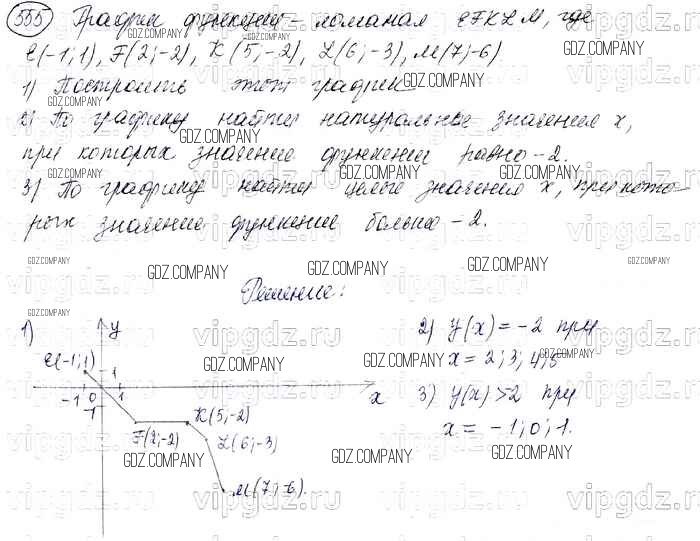 555 График функции - ломаная EFKLM, где
E(-1;1), F(2;-2), K(5,-2), L(6;-3), M(7;-6)
1) Построить этот график.
2) По графику найти натуральные значения x,
при которых значение функции равно -2.
3) По графику найти целые значения x, при кото-
рых значение функции больше -2.
Решение:
1)
y
E(-1;1)
1
-1 0 1
x
-1
F(2;-2)
K(5,-2)
L(6;-3)
M(7;-6).
2) y(x) = -2 при
x = 2; 3; 4; 5
3) y(x) >2 при
x = -1; 0; 1.
GDZ.COMPANY
vipgdz.ru